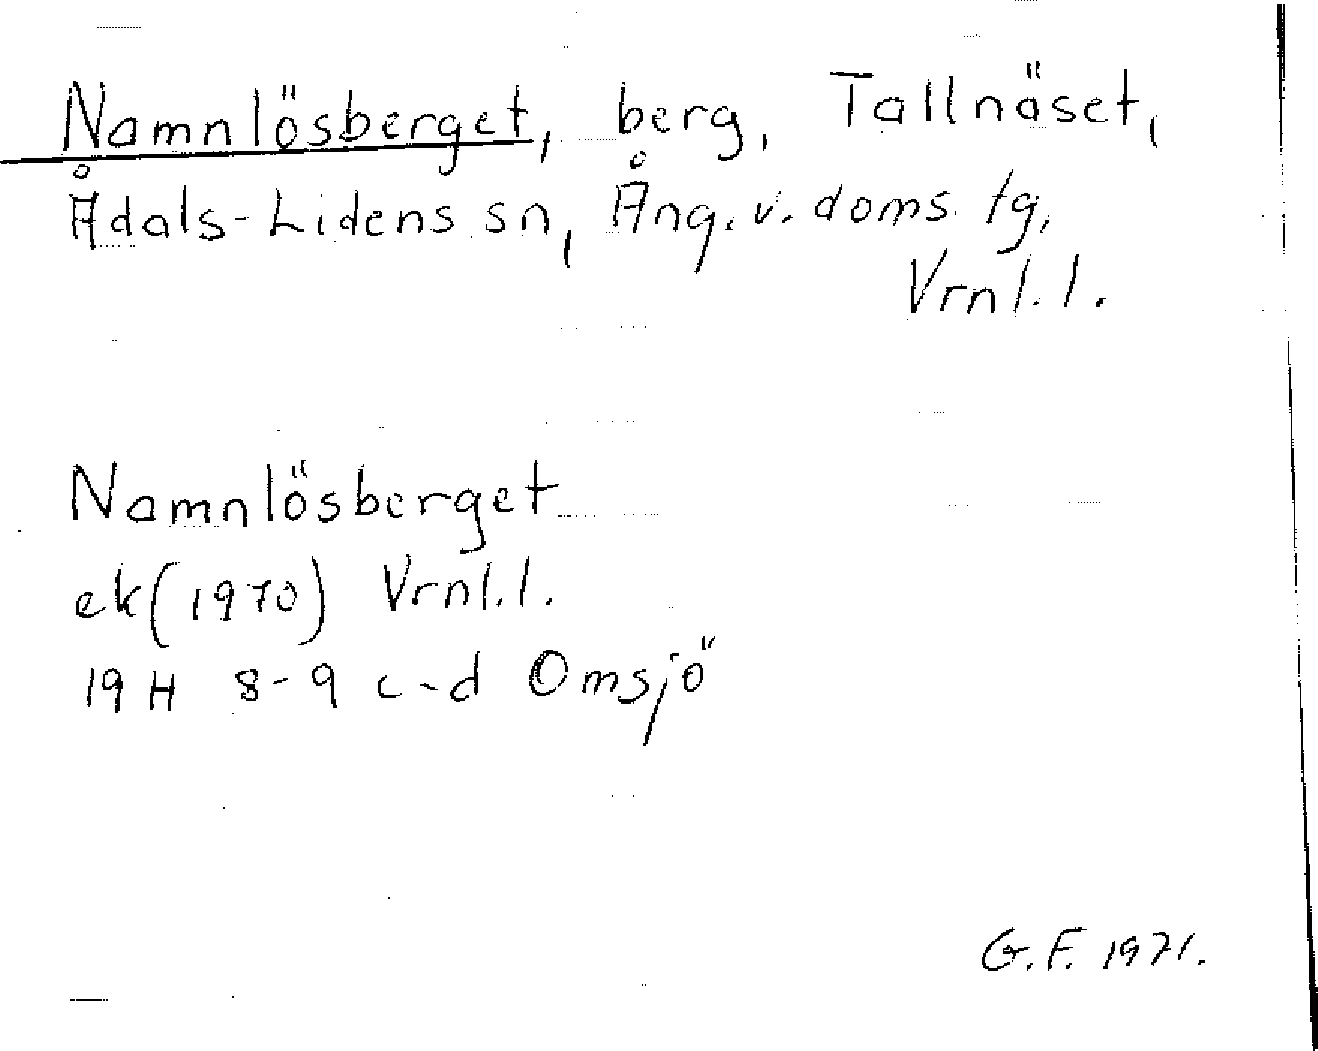 Namnlösberget, berg, Tallnäset,
Ådals-Lidens sn, Ång. v. doms. tg,
Vrnl. l.
Namnlösberget
ek (1970) Vrnl. l.
19 H 8-9 c-d Omsjö
G. F. 1971.